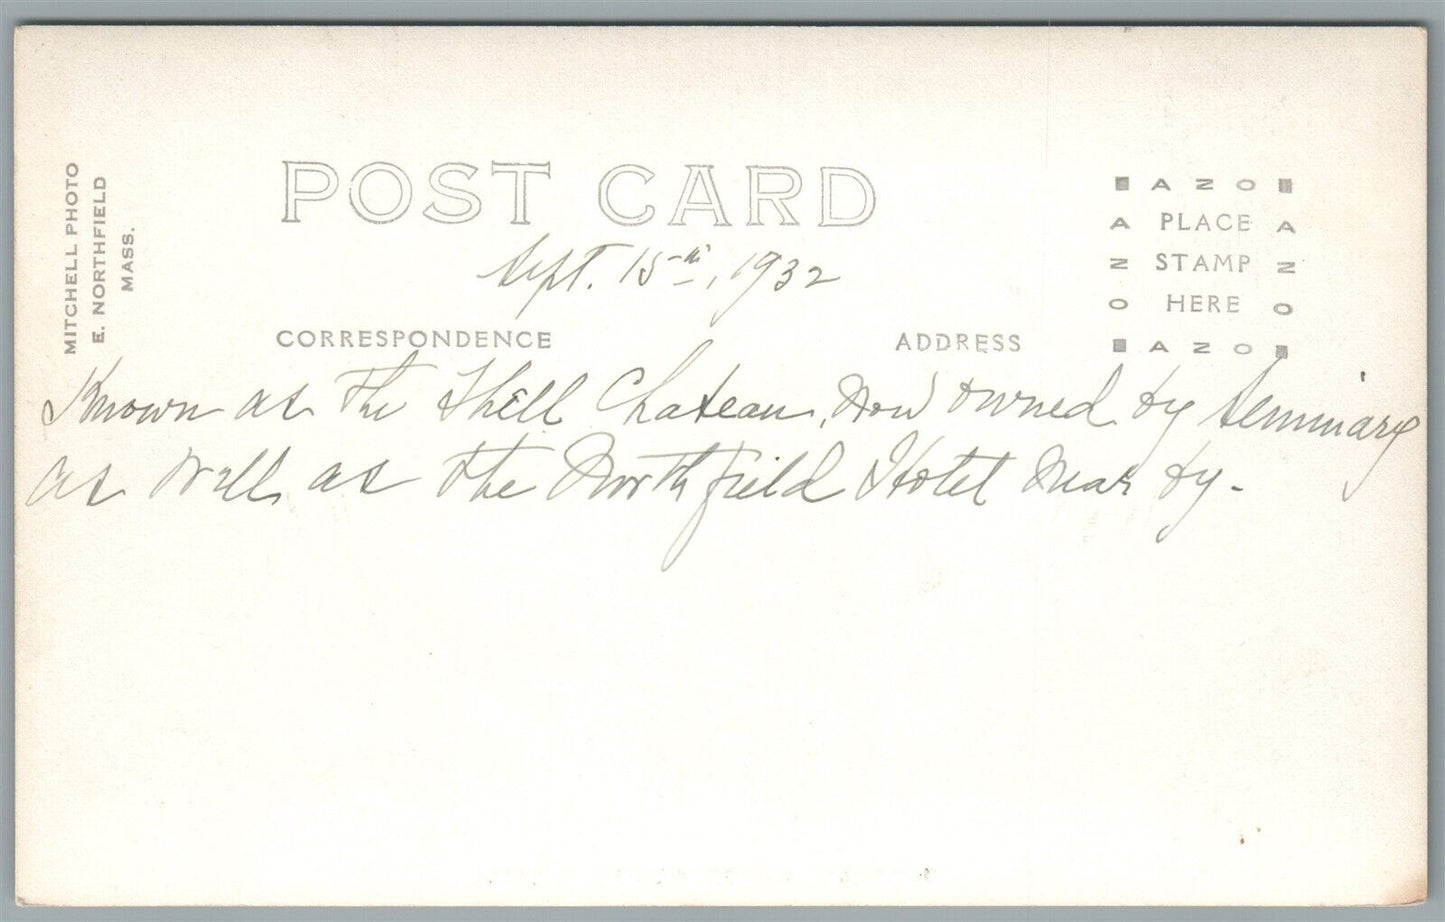 MITCHELL PHOTO
E. NORTHFIELD
MASS.
POST CARD
Sept. 15th, 1932
CORRESPONDENCE
ADDRESS
AZO
A PLACE A
Z STAMP Z
O HERE O
AZO
Known as The Shell Chateau, Now owned by Seminary
as well as the Northfield Hotel near by-